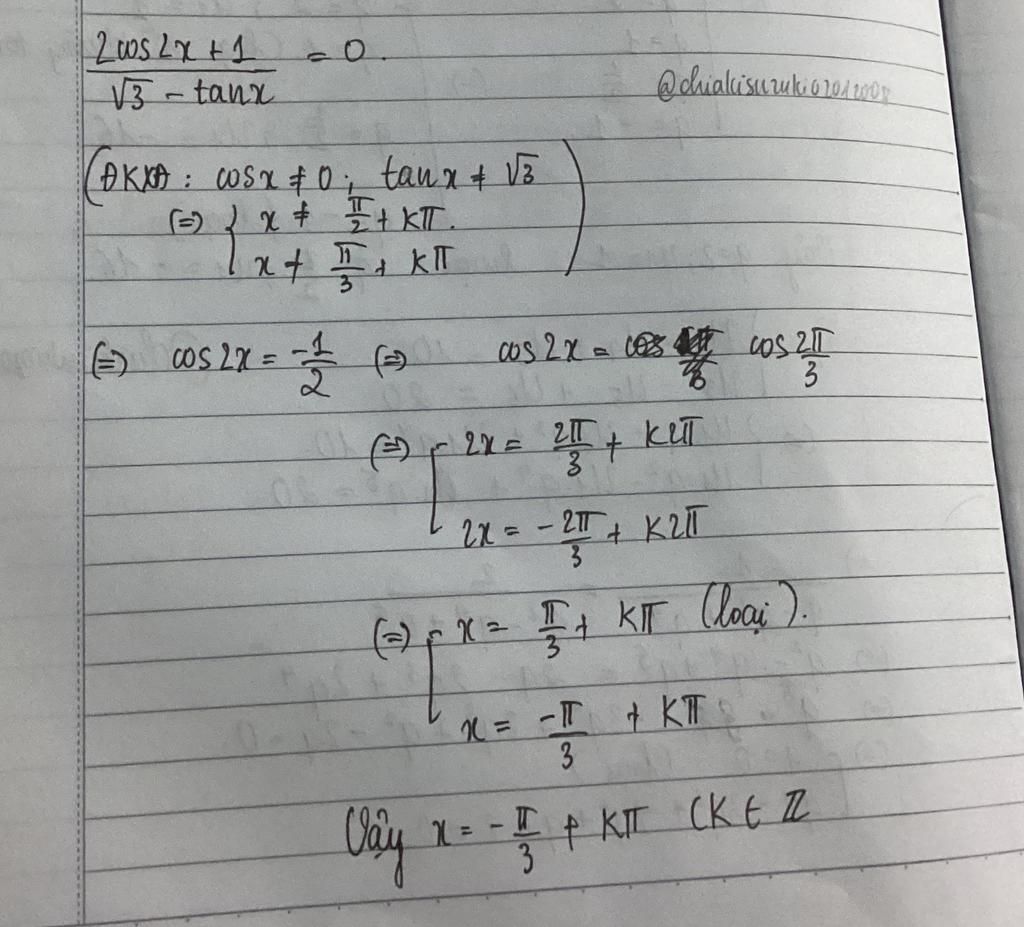 2cos2x + 1 / √3 - tanx = 0.
@chiakisuzuki02012008
(ĐKXĐ: cosx ≠ 0; tanx ≠ √3
(=) { x ≠ π/2 + kπ.
x ≠ π/3 + kπ )
(=) cos2x = -1/2 (=) cos2x = cos 2π/3
(=) [ 2x = 2π/3 + k2π
2x = -2π/3 + k2π
(=) [ x = π/3 + kπ (loại).
x = -π/3 + kπ
Vậy x = -π/3 + kπ (k ∈ ℤ